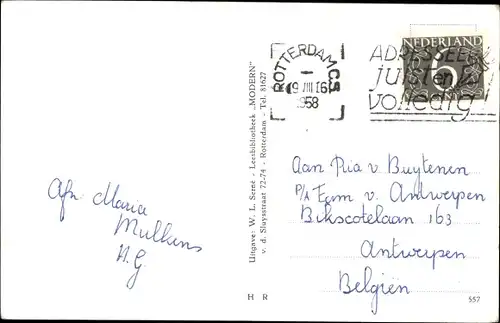 NEDERLAND
6
ROTTERDAM C.S
19 VIII 16
1958
ADRESSEER
juist en
volledig!
Uitgave: W. L. Serné - Leesbibliotheek „MODERN"
v. d. Sluysstraat 72-74 - Rotterdam - Tel. 81627
Afz. Maria
Mulkens
H.G.
Aan Pia v. Buytenen
P/A Fam v. Antwerpen
Bikscotelaan 163
Antwerpen
Belgiën
H R
557